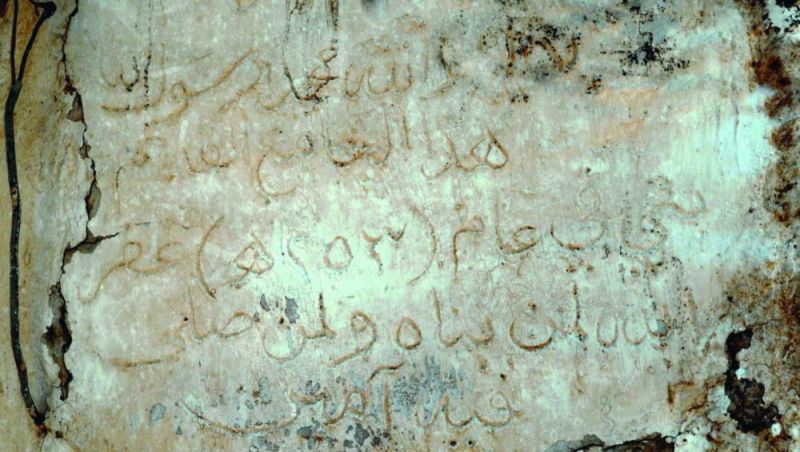 الله محمد رسول
هذا الجامع
بني في عام (٢٥٣هـ) غفر
الله لمن بناه ولمن صلى
فيه آمين